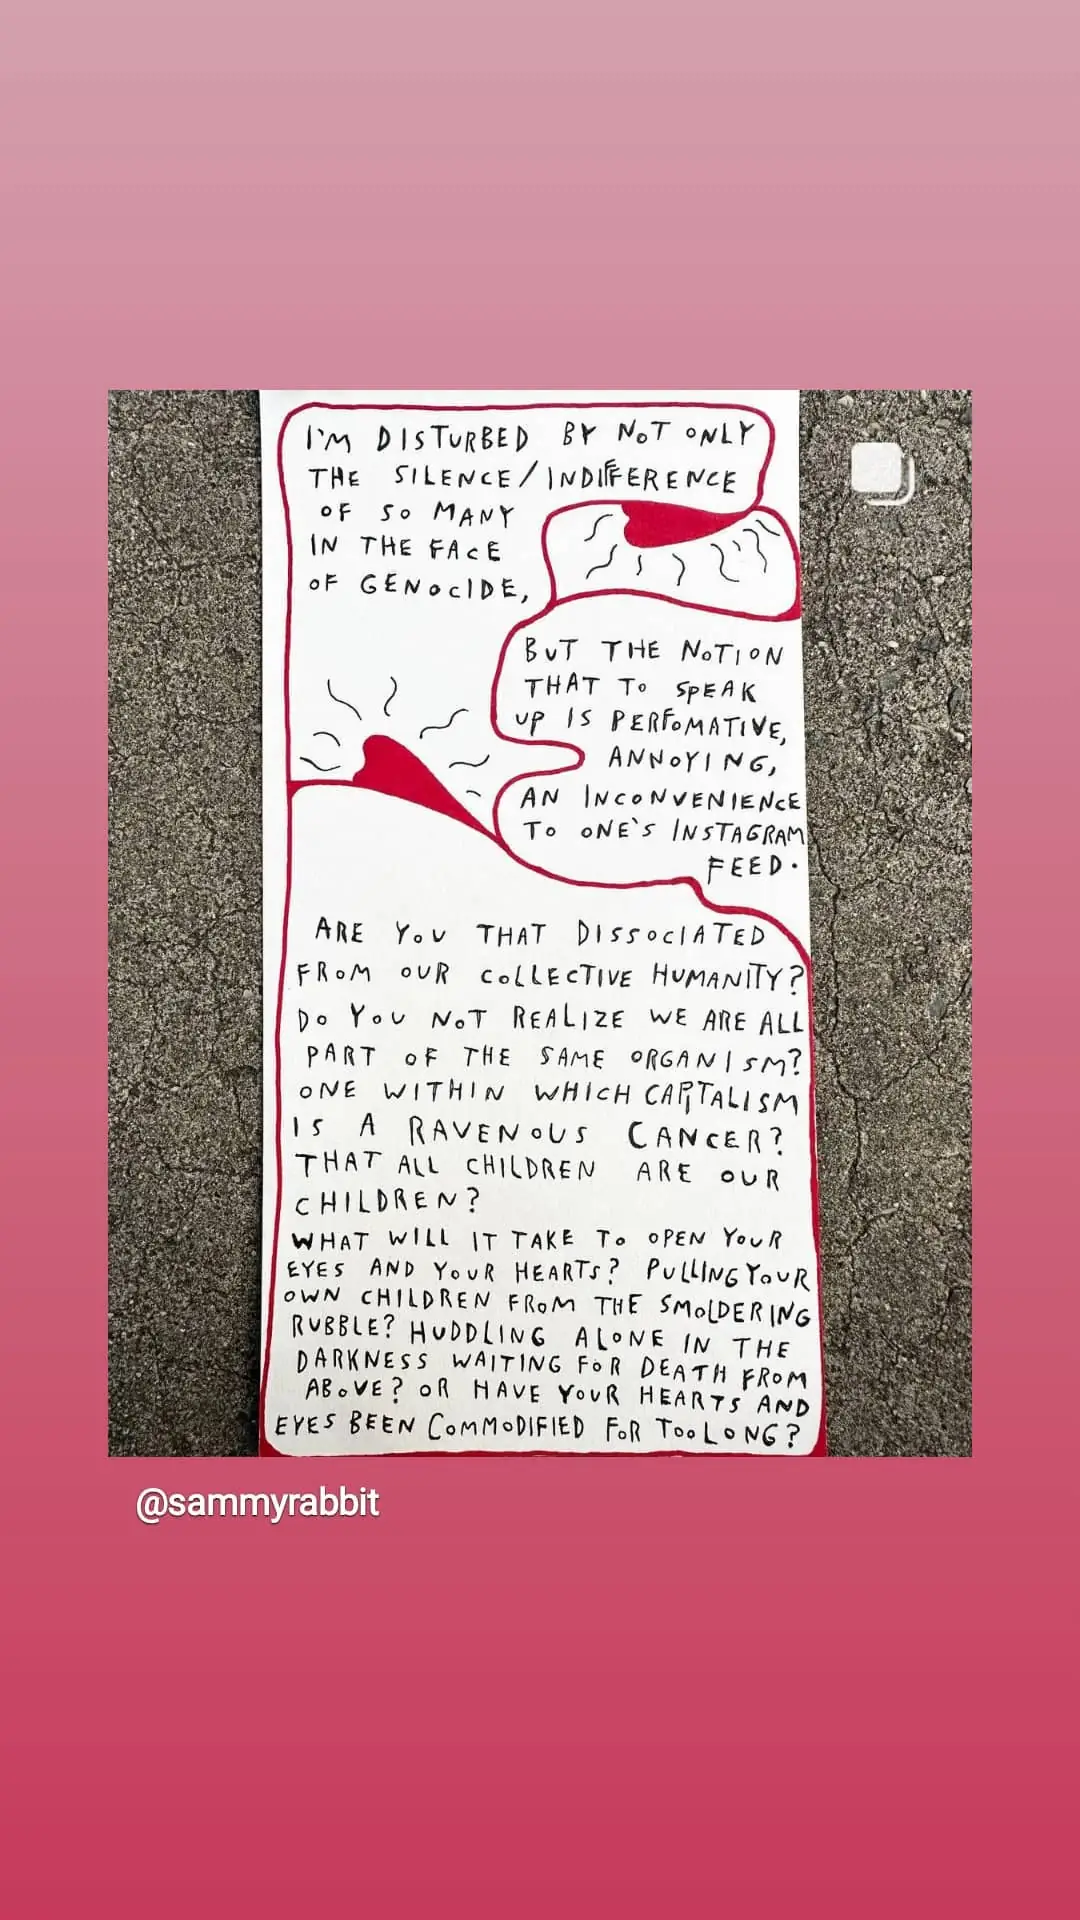 I'M DISTURBED BY NOT ONLY
THE SILENCE/INDIFFERENCE
OF SO MANY
IN THE FACE
OF GENOCIDE,
BUT THE NOTION
THAT TO SPEAK
UP IS PERFOMATIVE,
ANNOYING,
AN INCONVENIENCE
TO ONE'S INSTAGRAM
FEED.
ARE YOU THAT DISSOCIATED
FROM OUR COLLECTIVE HUMANITY?
DO YOU NOT REALIZE WE ARE ALL
PART OF THE SAME ORGANISM?
ONE WITHIN WHICH CAPITALISM
IS A RAVENOUS CANCER?
THAT ALL CHILDREN ARE OUR
CHILDREN?
WHAT WILL IT TAKE TO OPEN YOUR
EYES AND YOUR HEARTS? PULLING YOUR
OWN CHILDREN FROM THE SMOLDERING
RUBBLE? HUDDLING ALONE IN THE
DARKNESS WAITING FOR DEATH FROM
ABOVE? OR HAVE YOUR HEARTS AND
EYES BEEN COMMODIFIED FOR TOO LONG?
@sammyrabbit